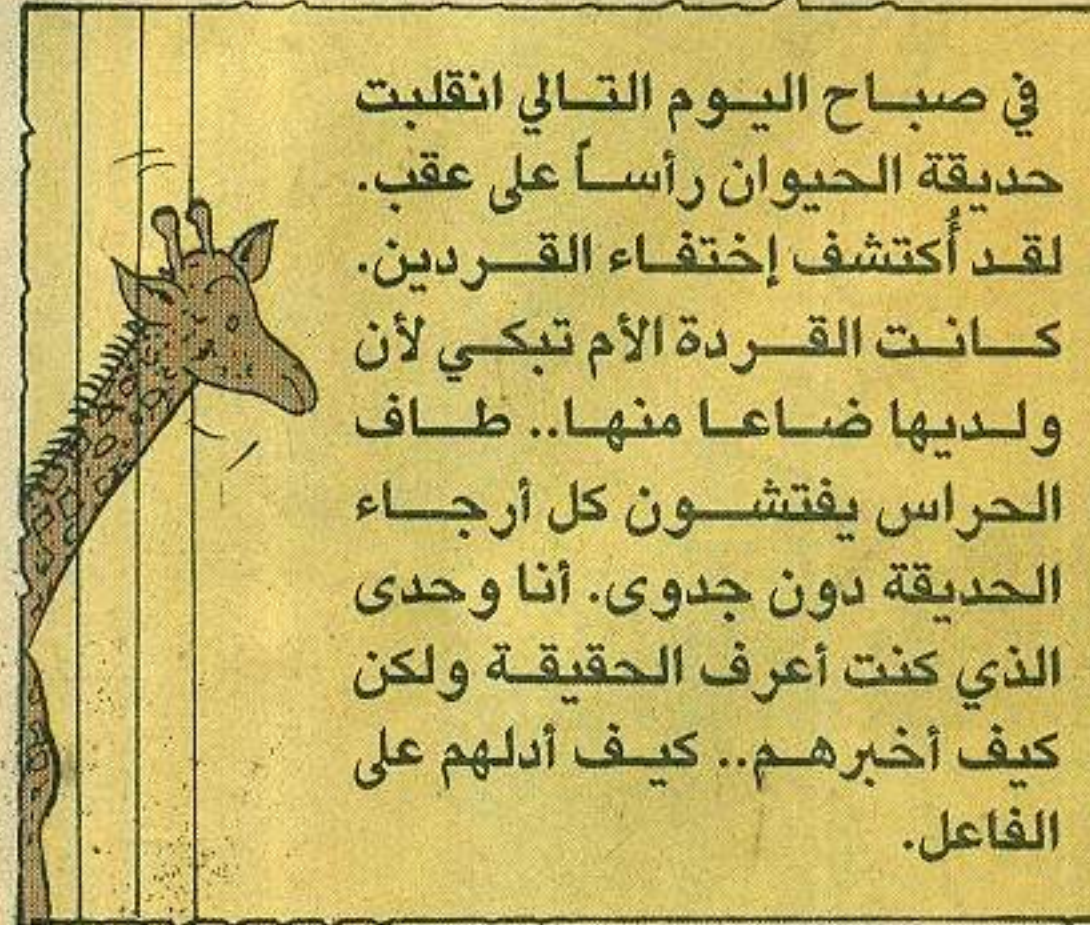 في صباح اليوم التالي انقلبت
حديقة الحيوان رأساً على عقب.
لقد أُكتشف إختفاء القردين.
كانت القردة الأم تبكي لأن
ولديها ضاعا منها.. طاف
الحراس يفتشون كل أرجاء
الحديقة دون جدوى. أنا وحدى
الذي كنت أعرف الحقيقة ولكن
كيف أخبرهم.. كيف أدلهم على
الفاعل.